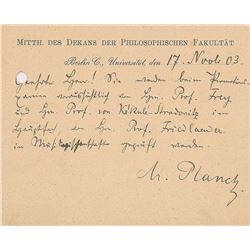 MITTH. DES DEKANS DER PHILOSOPHISCHEN FAKULTÄT
Berlin C., Universität, den 17. Novb. 03.
Geehrter Herr! Sie werden beim Promotions-
examen voraussichtlich von Hrn. Prof. Frey
und Hrn. Prof. von Kekule-Stradonitz im
Hauptfach, von Hrn. Prof. Friedlaender
in Musikwissenschaft geprüft werden.
M. Planck